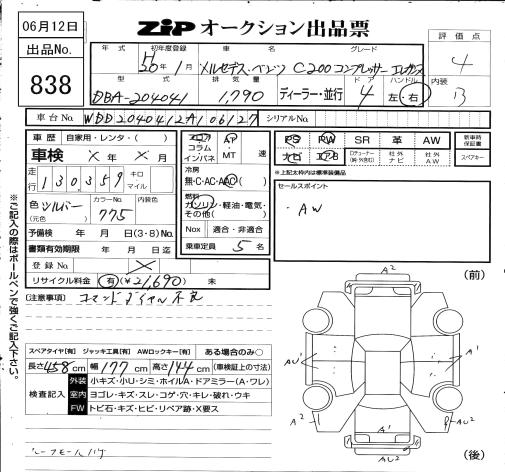 06月12日
ZIP オークション出品票
出品No.
838
評価点
4
内装
B
年式 初年度登録 車名 グレード
H20年1月 メルセデス・ベンツ C200コンプレッサー エレガンス
型式 排気量 ドア ハンドル
DBA-204041 1,790 ディーラー・並行 4 左・右
車台No. WDD2040412A106127 シリアルNo.
車歴 自家用・レンタ・( )
車検 X年X月
走行 130359 キロ マイル
色 シルバー カラーNo. 775 内装色
(元色)
予備検 年 月 日(3・8)No.
書類有効期限 年 月 日迄
登録No. X
リサイクル料金 有(¥21,690) 未
フロア コラム インパネ
AT・MT 速
冷房
無・C・AC・AAC( )
燃料
ガソリン・軽油・電気・その他( )
Nox 適合・非適合
乗車定員 5 名
PS PW SR 革 AW
ナビ エアB 社外ナビ 社外AW
新車時保証書
スペアキー
※上記太枠内は標準装備品
セールスポイント
・AW
※ご記入の際はボールペンで強くご記入下さい。
(注意事項) コマンドダイヤル不良
スペアタイヤ[有] ジャッキ工具[有] AWロックキー[有] ある場合のみ○
長さ458cm 幅177cm 高さ144cm (車検証上の寸法)
検査記入
外装 小キズ・小U・シミ・ホイルA・ドアミラー(A・ワレ)
室内 ヨゴレ・キズ・スレ・コゲ・穴・キレ・破れ・ウキ
FW トビ石・キズ・ヒビ・リペア跡・X要ス
ルーフモールハゲ
(前)
A2
AU1
A1
A2
A1
AU2
AU2
(後)